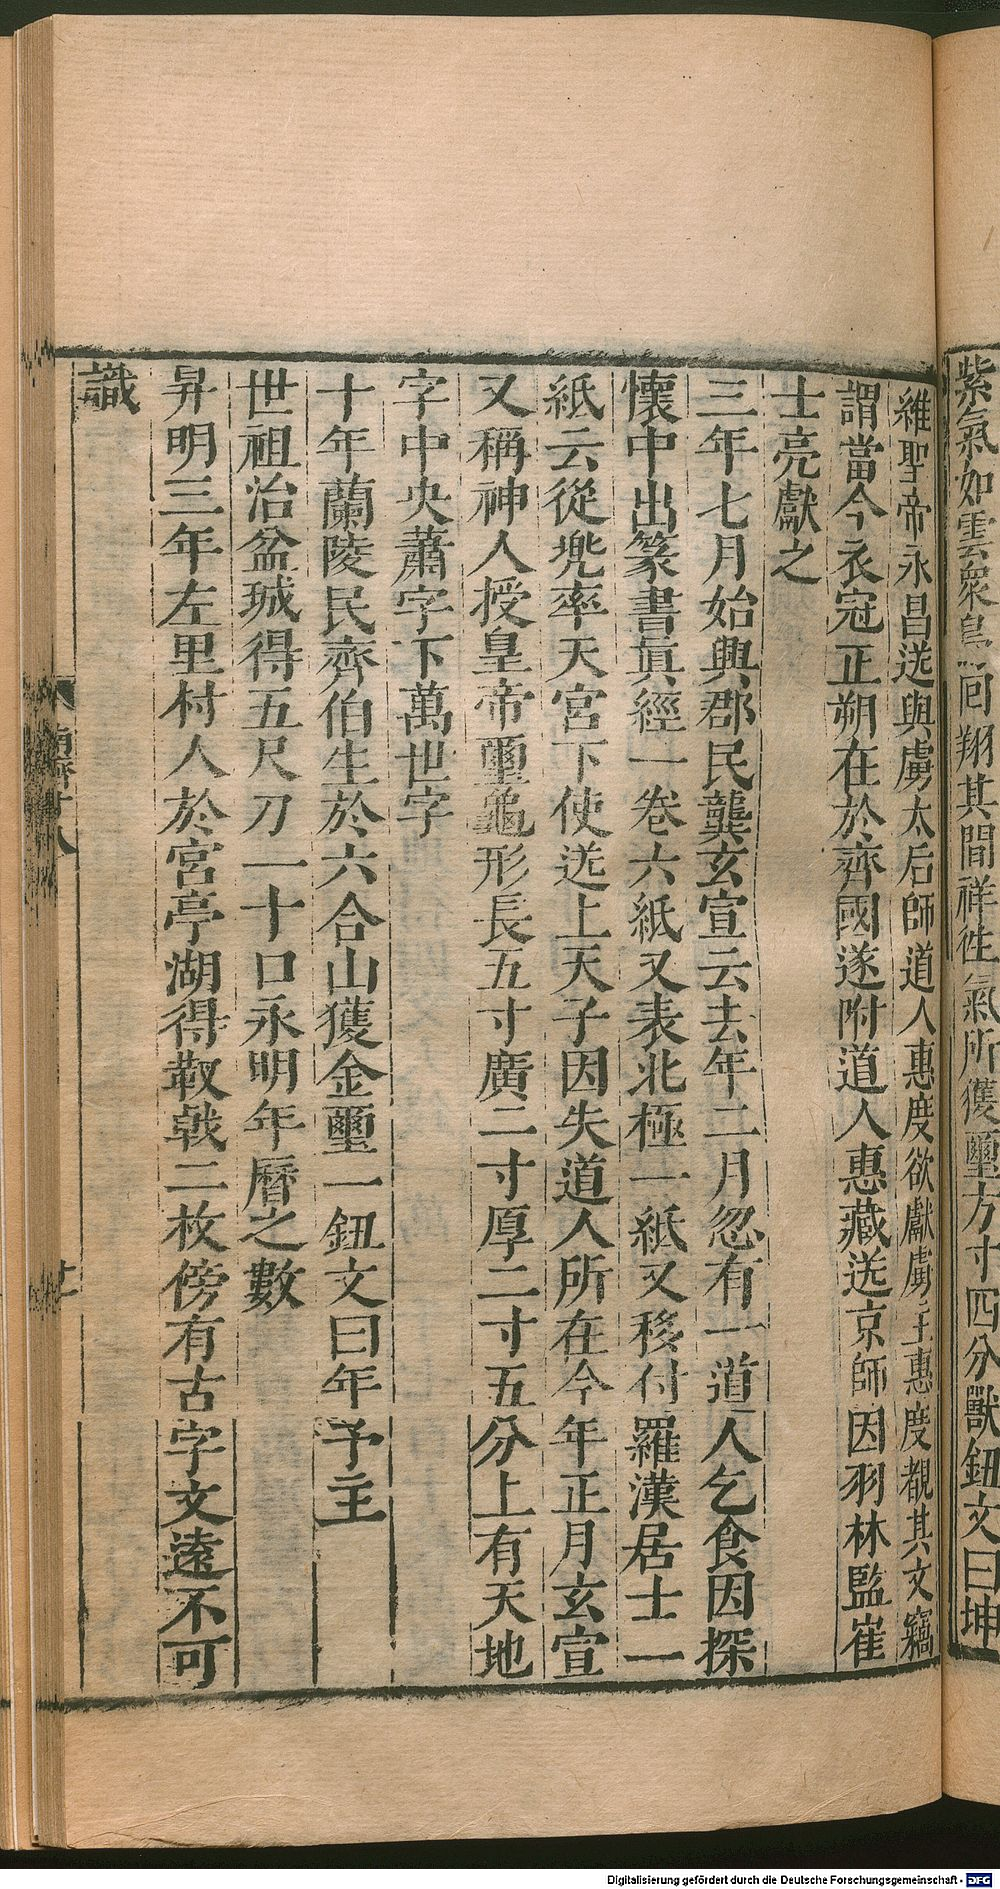 紫氣如雲衆鳥回翔其間祥往氣所獲璽方寸四分獸鈕文曰坤
維聖帝永昌送與虜太后師道人惠度欲獻虜主惠度覩其文竊
謂當今衣冠正朔在於齊國遂附道人惠藏送京師因羽林監崔
士亮獻之
三年七月始興郡民龔玄宣云去年二月忽有一道人乞食因探
懷中出篆書真經一卷六紙又表北極一紙又移付羅漢居士一
紙云從兠率天宮下使送上天子因失道人所在今年正月玄宣
又稱神人授皇帝璽龜形長五寸廣二寸厚二寸五分上有天地
字中央蕭字下萬世字
十年蘭陵民齊伯生於六合山獲金璽一鈕文曰年予主
世祖治盆城得五尺刀一十口永明年曆之數
昇明三年左里村人於宮亭湖得靫戟二枚傍有古字文遠不可
識
南齊十八
十一
Digitalisierung gefördert durch die Deutsche Forschungsgemeinschaft - DFG